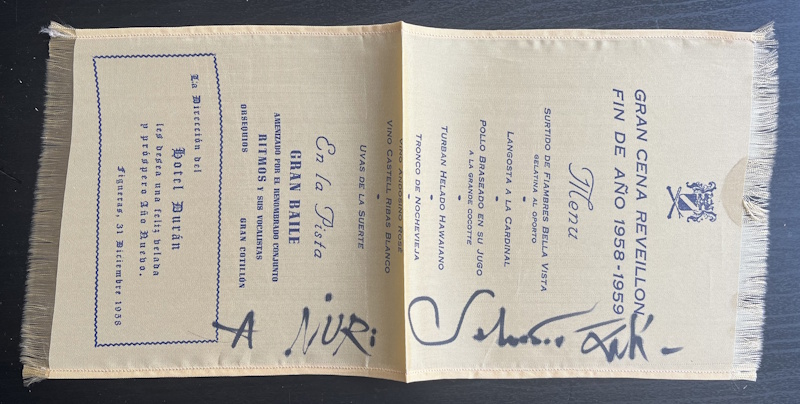 GRAN CENA REVEILLON
FIN DE AÑO 1958-1959
Menu
SURTIDO DE FIAMBRES BELLA VISTA
GELATINA AL OPORTO
LANGOSTA A LA CARDINAL
POLLO BRASEADO EN SU JUGO
A LA GRANDE COCOTTE
TURBAN HELADO HAWAIANO
TRONCO DE NOCHEVIEJA
VINO ANDOSINO ROSÉ
VINO CASTELL RIBAS BLANCO
UVAS DE LA SUERTE
En la Pista
GRAN BAILE
AMENIZADO POR EL RENOMBRADO CONJUNTO
RITMOS Y SUS VOCALISTAS
OBSEQUIOS GRAN COTILLÓN
La Dirección del
Hotel Durán
les desea una feliz velada
y próspero Año Nuevo.
Figueras, 31 Diciembre 1958
A NURi